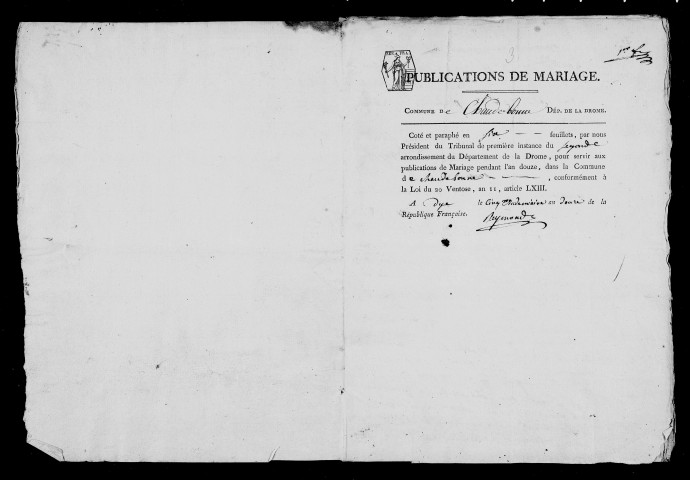 3
1er f
PUBLICATIONS DE MARIAGE.
COMMUNE De Chaudebonne DÉP. DE LA DROME.
Coté et paraphé en six feuillets, par nous
Président du Tribunal de première instance du second
arrondissement du Département de la Drome, pour servir aux
publications de Mariage pendant l'an douze, dans la Commune
de chaudebonne, conformément à
la Loi du 20 Ventose, an 11, article LXIII.
A Dye le Cinq Vendemiaire an douze de la
République Française.
Reymond